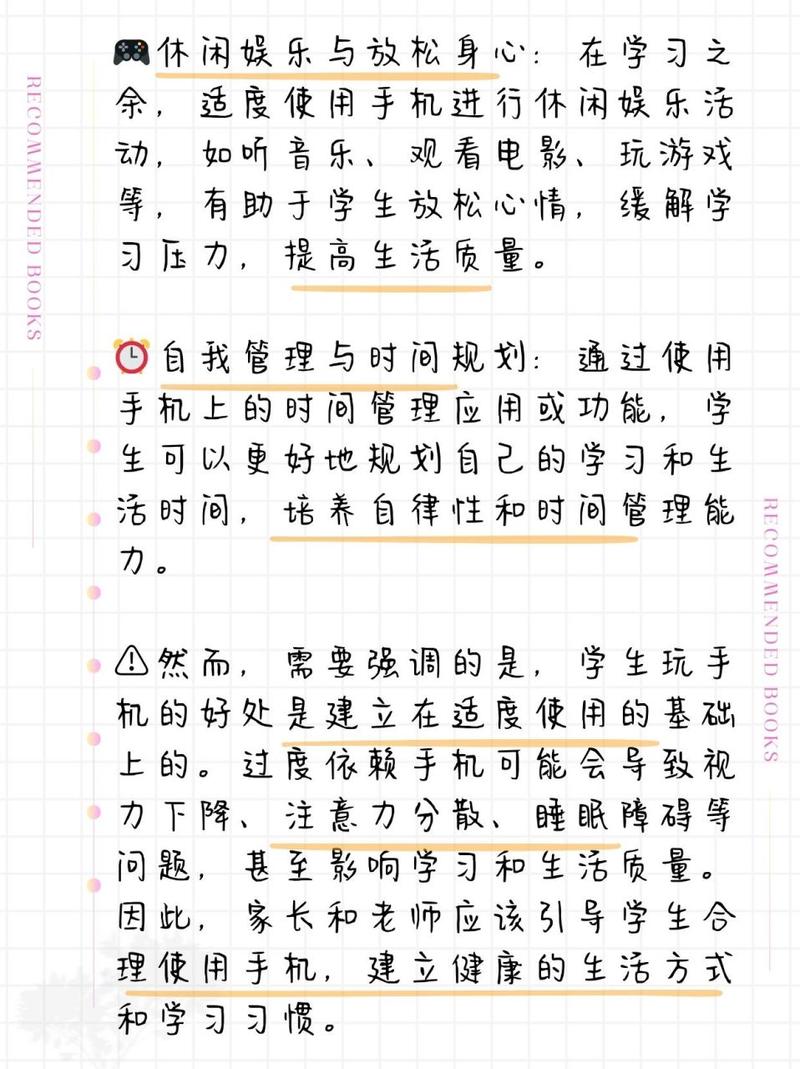 🎮休闲娱乐与放松身心：在学习之
余，适度使用手机进行休闲娱乐活
动，如听音乐、观看电影、玩游戏
等，有助于学生放松心情，缓解学
习压力，提高生活质量。
⏰自我管理与时间规划：通过使用
手机上的时间管理应用或功能，学
生可以更好地规划自己的学习和生
活时间，培养自律性和时间管理能
力。
⚠然而，需要强调的是，学生玩手
机的好处是建立在适度使用的基础
上的。过度依赖手机可能会导致视
力下降、注意力分散、睡眠障碍等
问题，甚至影响学习和生活质量。
因此，家长和老师应该引导学生合
理使用手机，建立健康的生活方式
和学习习惯。
RECOMMENDED BOOKS
RECOMMENDED BOOKS